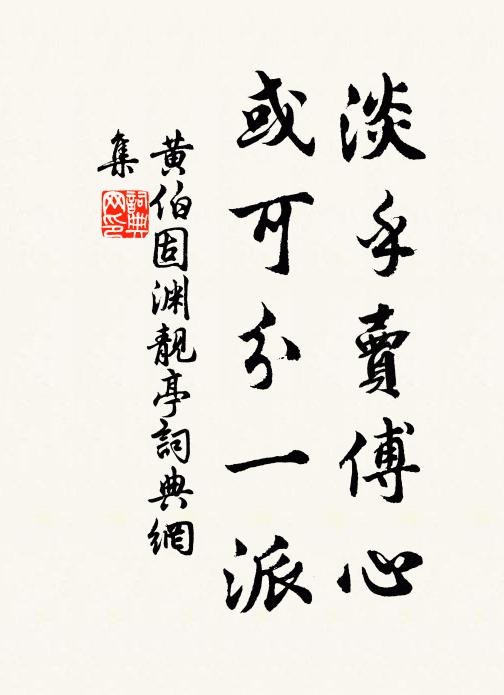 淡乎賣傅心
或可分一派
黃伯固淵靚亭詞典網
集
詞典
网印